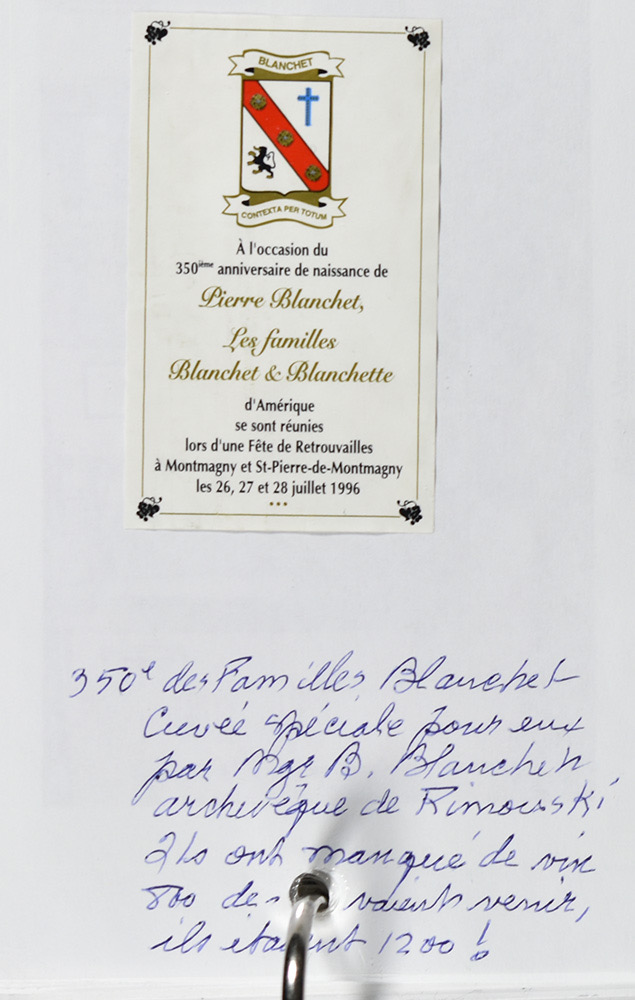 BLANCHET
CONTEXTA PER TOTUM
À l'occasion du
350ième anniversaire de naissance de
Pierre Blanchet,
Les familles
Blanchet & Blanchette
d'Amérique
se sont réunies
lors d'une Fête de Retrouvailles
à Montmagny et St-Pierre-de-Montmagny
les 26, 27 et 28 juillet 1996
350e des Familles Blanchet
Cuvée spéciale pour eux
par Mgr B. Blanchet
archevêque de Rimouski
Ils ont manqué de vin
800 de venir,
ils étaient 1200 !